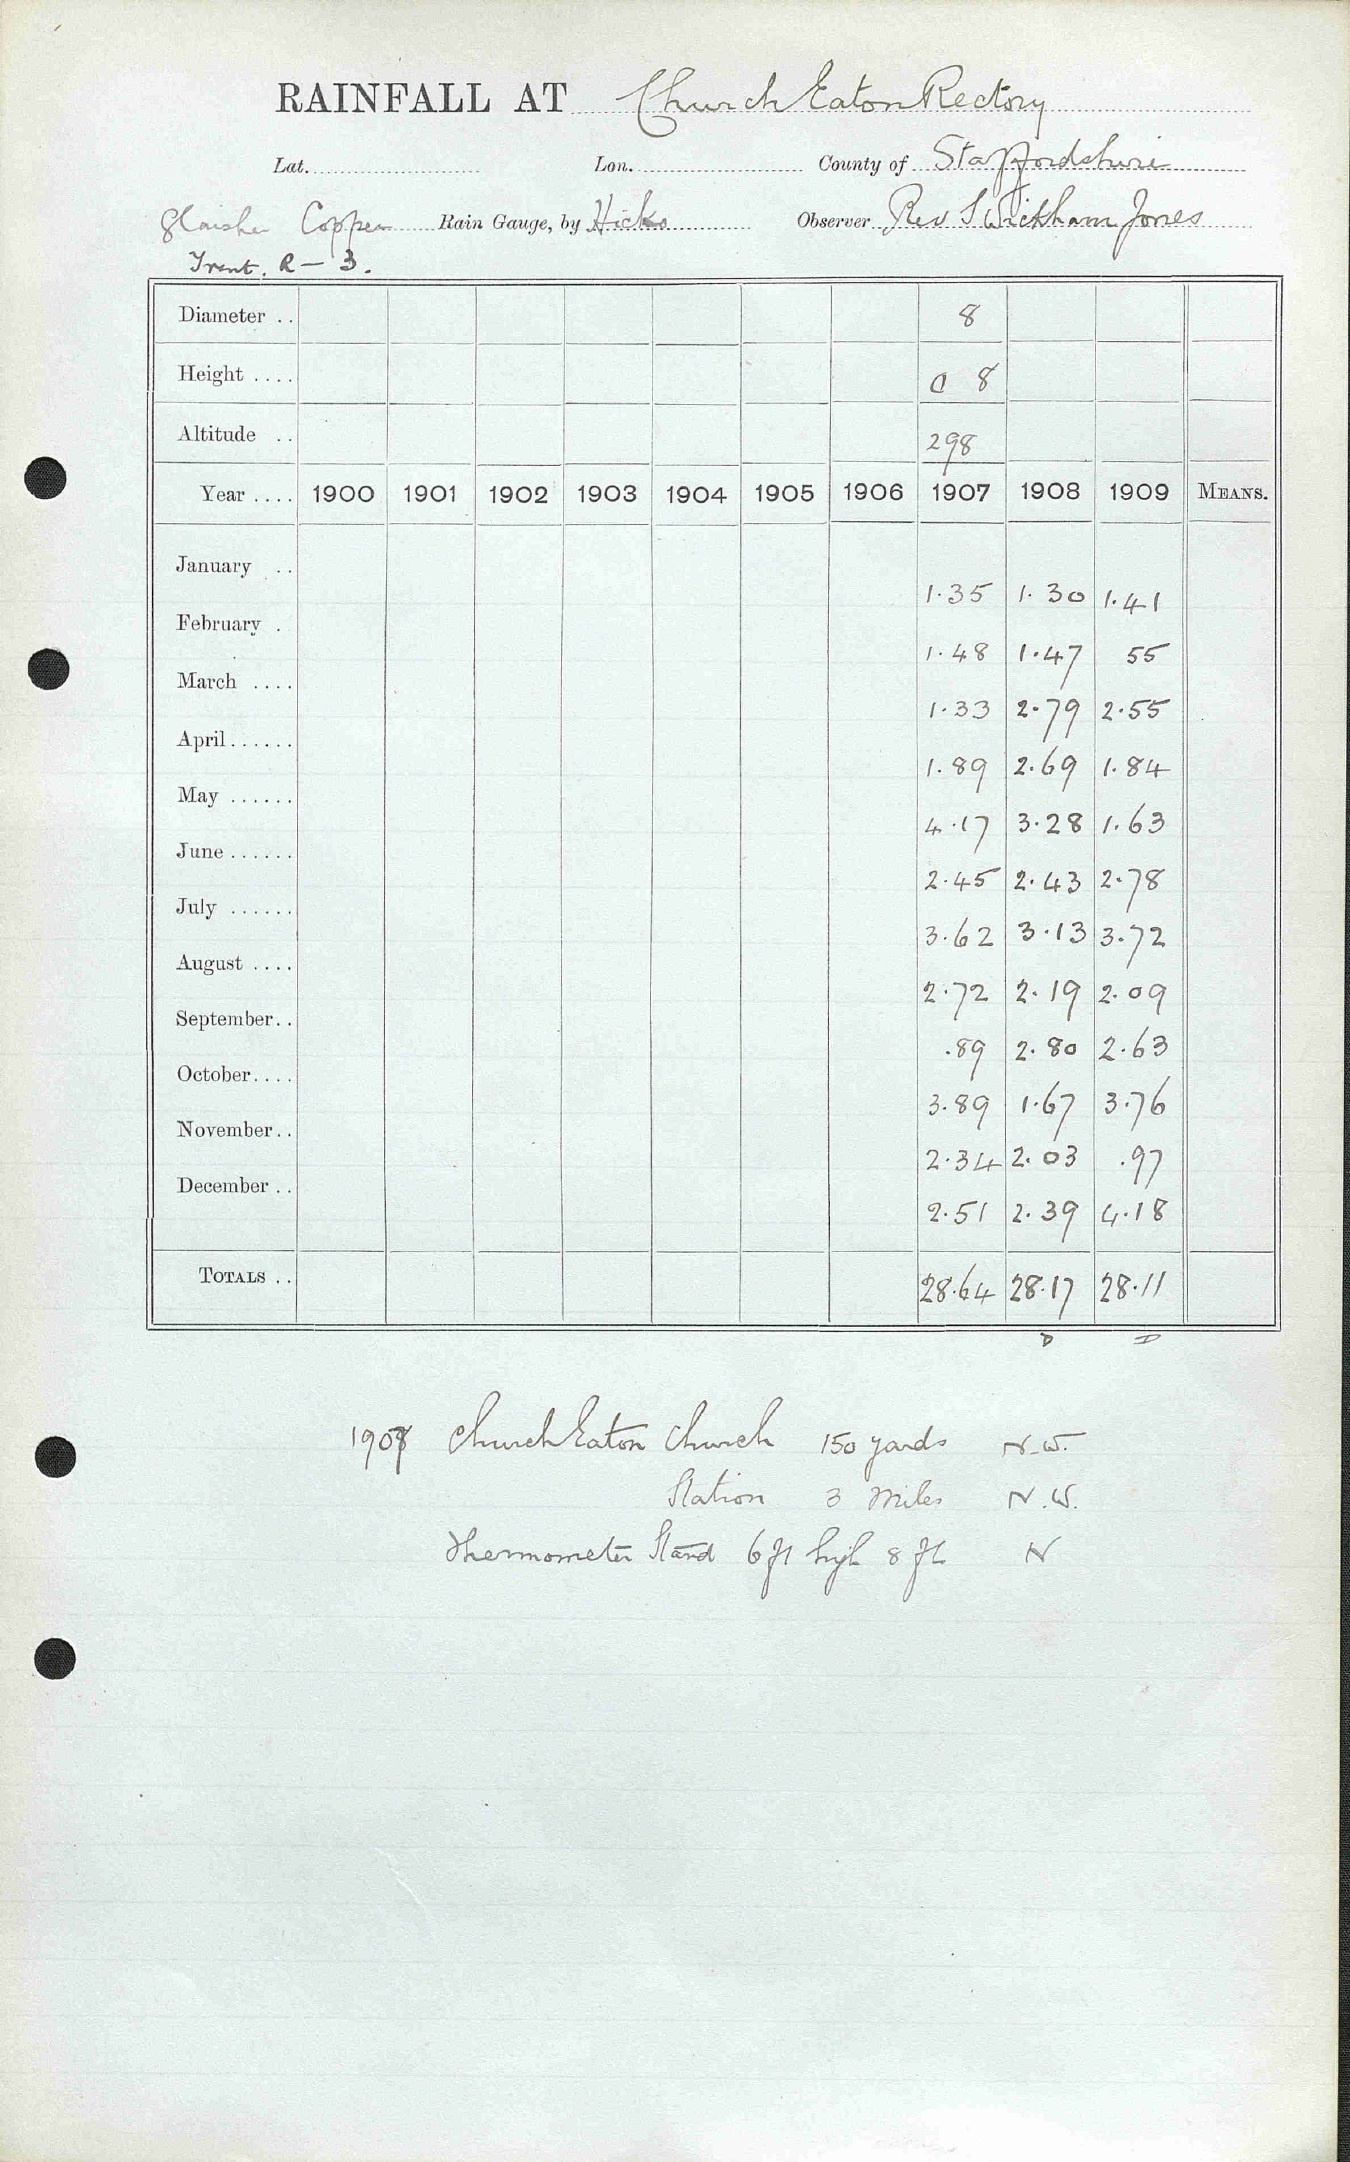 RAINFALL AT Church Eaton Rectory
Lat. Lon. County of Staffordshire
Glaisher Copper Rain Gauge, by Hicks Observer Rev T Wickham Jones
Trent. R — 3.
Diameter .. 8
Height .... 0 8
Altitude .. 298
Year .... 1900 1901 1902 1903 1904 1905 1906 1907 1908 1909 MEANS.
January .. 1.35 1.30 1.41
February . 1.48 1.47 55
March .... 1.33 2.79 2.55
April...... 1.89 2.69 1.84
May ...... 4.17 3.28 1.63
June ...... 2.45 2.43 2.78
July ...... 3.62 3.13 3.72
August .... 2.72 2.19 2.09
September.. .89 2.80 2.63
October.... 3.89 1.67 3.76
November.. 2.34 2.03 .97
December .. 2.51 2.39 4.18
TOTALS .. 28.64 28.17 28.11
D D
1907 Church Eaton Church 150 yards N.W.
Station 3 Miles N.W.
Thermometer Stand 6 ft high 8 ft N